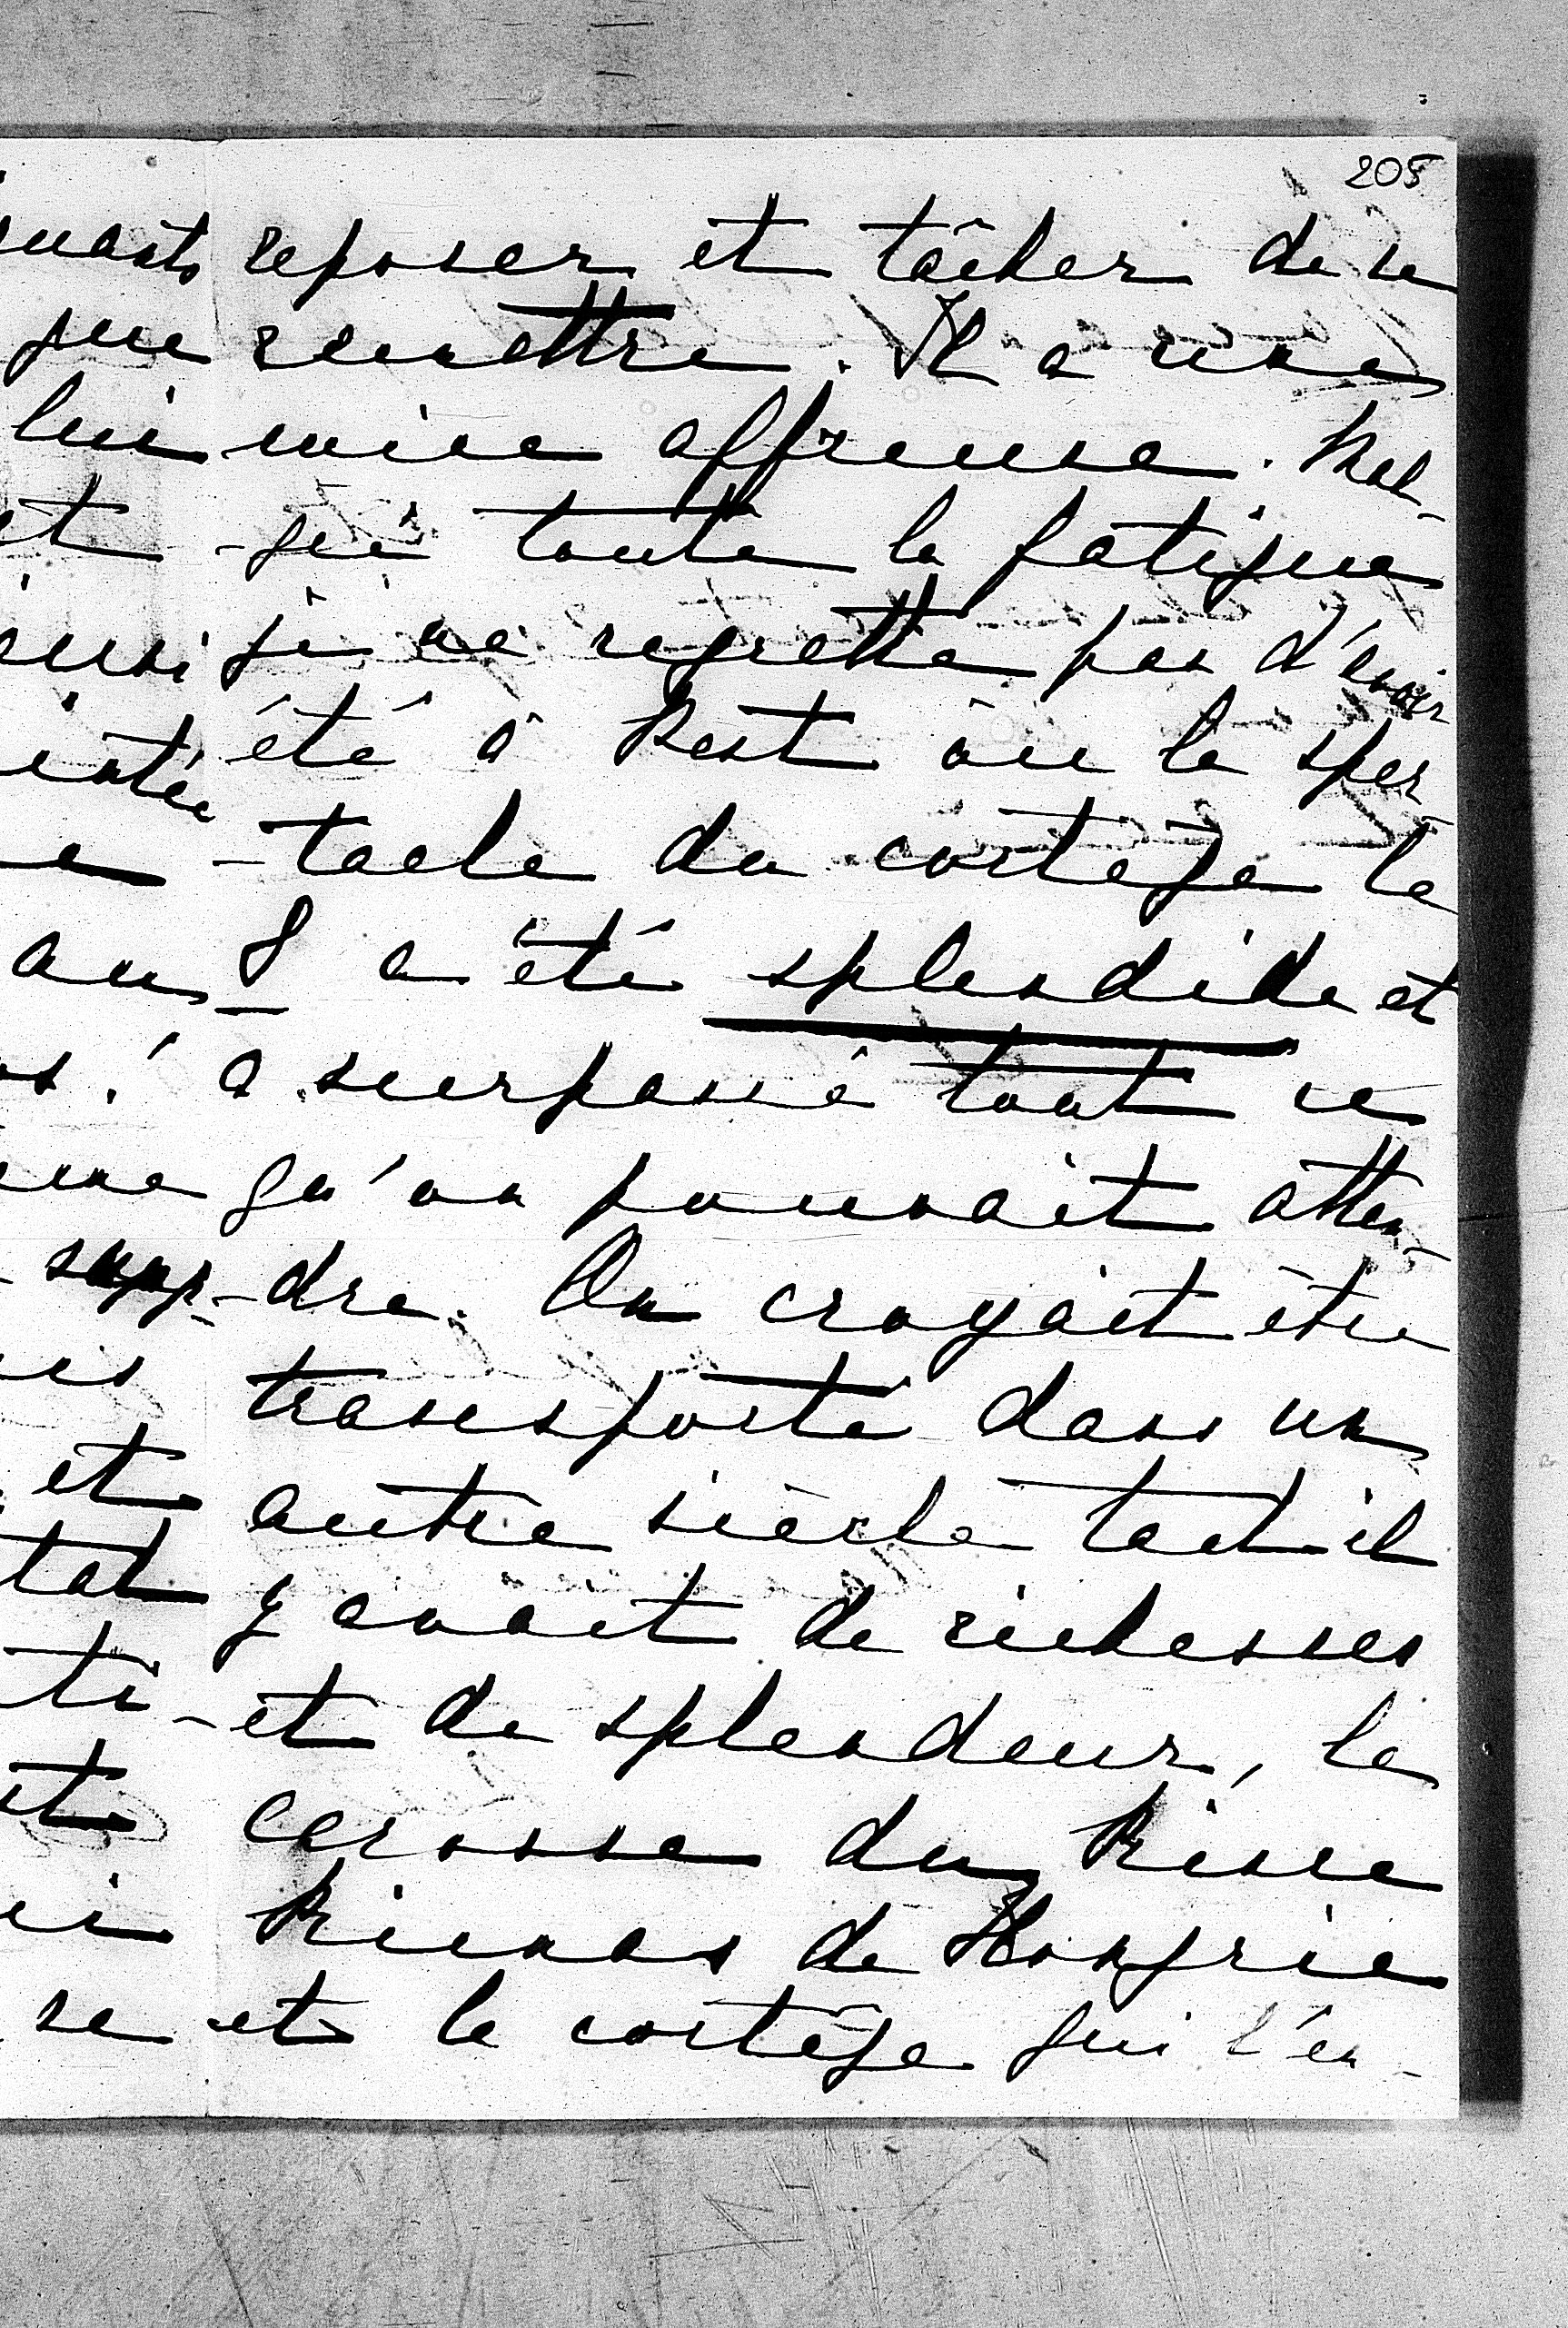 que
lui
et
au
supp-
et
se
205
reposer et tâcher de se
remettre. Il a une
mine affreuse. Mal-
-gré toute la fatigue
je ne regrette pas d'avoir
été à Pest où le spec-
-tacle du cortège le
8 a été splendide et
a surpassé tout ce
qu'on pouvait atten-
-dre. On croyait être
transporté dans un
autre siècle tant il
y avait de richesses
et de splendeur, le
carosse du Prince
Primas de Hongrie
et le cortège qui l'en-